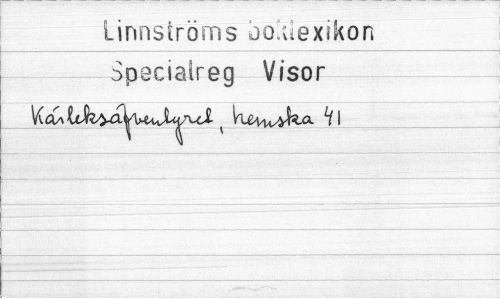 Linnströms boklexikon
Specialreg Visor
Kärleksäfventyret, hemska 41